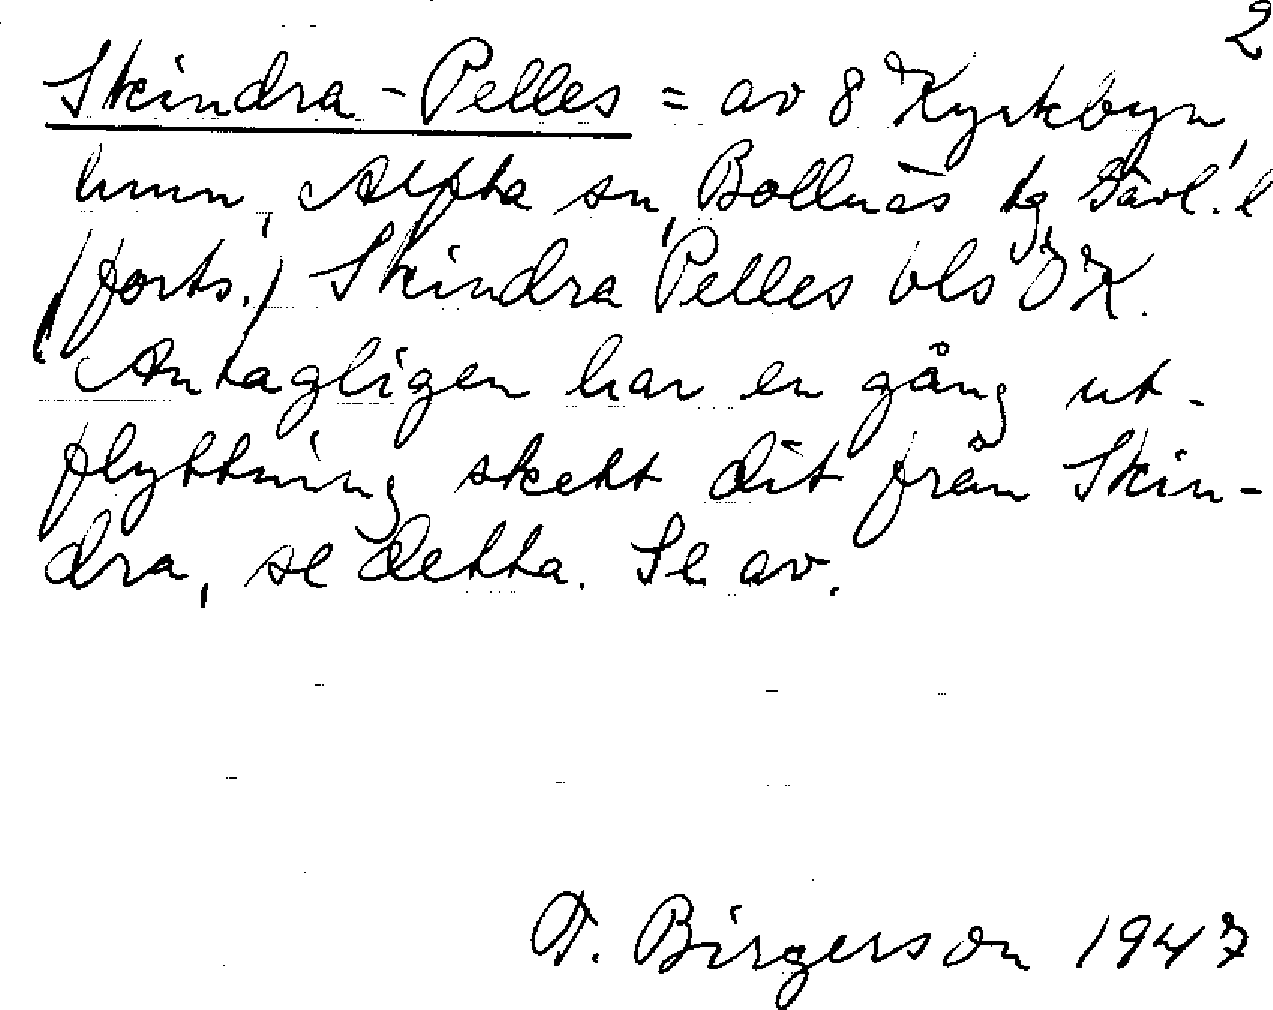 2
Skindra-Pelles = av 8 Kyrkbyn
hmn, Alfta sn, Bollnäs tg Gävl. l
(forts.) Skindra Pelles bls ÖK.
Antagligen har en gång ut-
flyttning skett dit från Skin-
dra, se detta. Se av.
T. Birgerson 1947